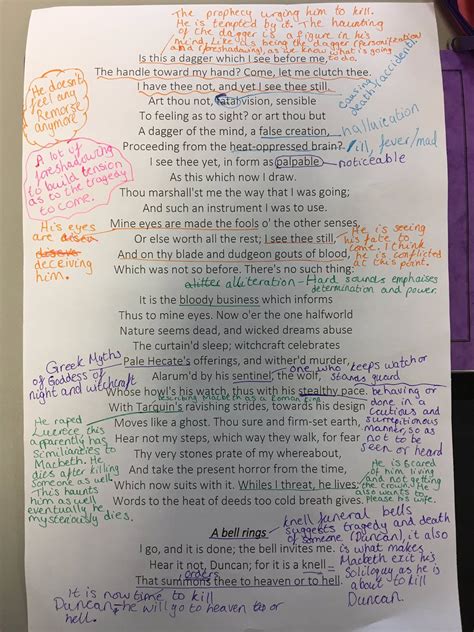 The prophecy urging him to kill.
He is tempted by it. The haunting
of the dagger is a figure in his
mind. Like as being the dagger (personification
and (foreshadowing), as we know what is going
to do.
Is this a dagger which I see before me,
The handle toward my hand? Come, let me clutch thee.
I have thee not, and yet I see thee still.
Art thou not, fatal vision, sensible
causing
death/accidental
To feeling as to sight? or art thou but
A dagger of the mind, a false creation,
hallucination
Proceeding from the heat-oppressed brain?
ill, fever/mad
I see thee yet, in form as palpable
noticeable
As this which now I draw.
Thou marshall'st me the way that I was going;
And such an instrument I was to use.
Mine eyes are made the fools o' the other senses,
Or else worth all the rest; I see thee still,
And on thy blade and dudgeon gouts of blood,
Which was not so before. There's no such thing:
He doesn't
feel any
Remorse
anymore
A lot of
foreshadowing
to build tension
as to the tragedy
to come.
His eyes
are
deceiving
him.
He is seeing
his fate to
come. I think
he is conflicted
at this point.
alliteration - Hard sounds emphaises
determination and power.
It is the bloody business which informs
Thus to mine eyes. Now o'er the one halfworld
Nature seems dead, and wicked dreams abuse
The curtain'd sleep; witchcraft celebrates
Pale Hecate's offerings, and wither'd murder,
Greek Myths
of Goddess of
night and witchcraft
Alarum'd by his sentinel, the wolf,
one who keeps watch or
stands guard
Whose howl's his watch, thus with his stealthy pace.
describing Macbeth as a Roman King
With Tarquin's ravishing strides, towards his design
Moves like a ghost. Thou sure and firm-set earth,
Hear not my steps, which way they walk, for fear
Thy very stones prate of my whereabout,
And take the present horror from the time,
Which now suits with it. Whiles I threat, he lives:
Words to the heat of deeds too cold breath gives.
behaving or
done in a
cautious and
surreptitious
manner, so as
not to be
seen or heard
He raped
Lucrece this
apparently has
similiarities to
Macbeth. He
dies after killing
someone as well
This haunts
him as well
eventually he
mysteriously dies.
He is scared
of him living
and not getting
the crown. He
also wants to
please his wife.
A bell rings
knell funeral bells
suggests tragedy and death
of someone (Duncan), it also
is what makes
Macbeth exit his
Soliloquy as he is
about to kill
Duncan.
I go, and it is done; the bell invites me.
Hear it not, Duncan; for it is a knell
orders
That summons thee to heaven or to hell.
It is now time to kill
Duncan, he will go to heaven or
hell.